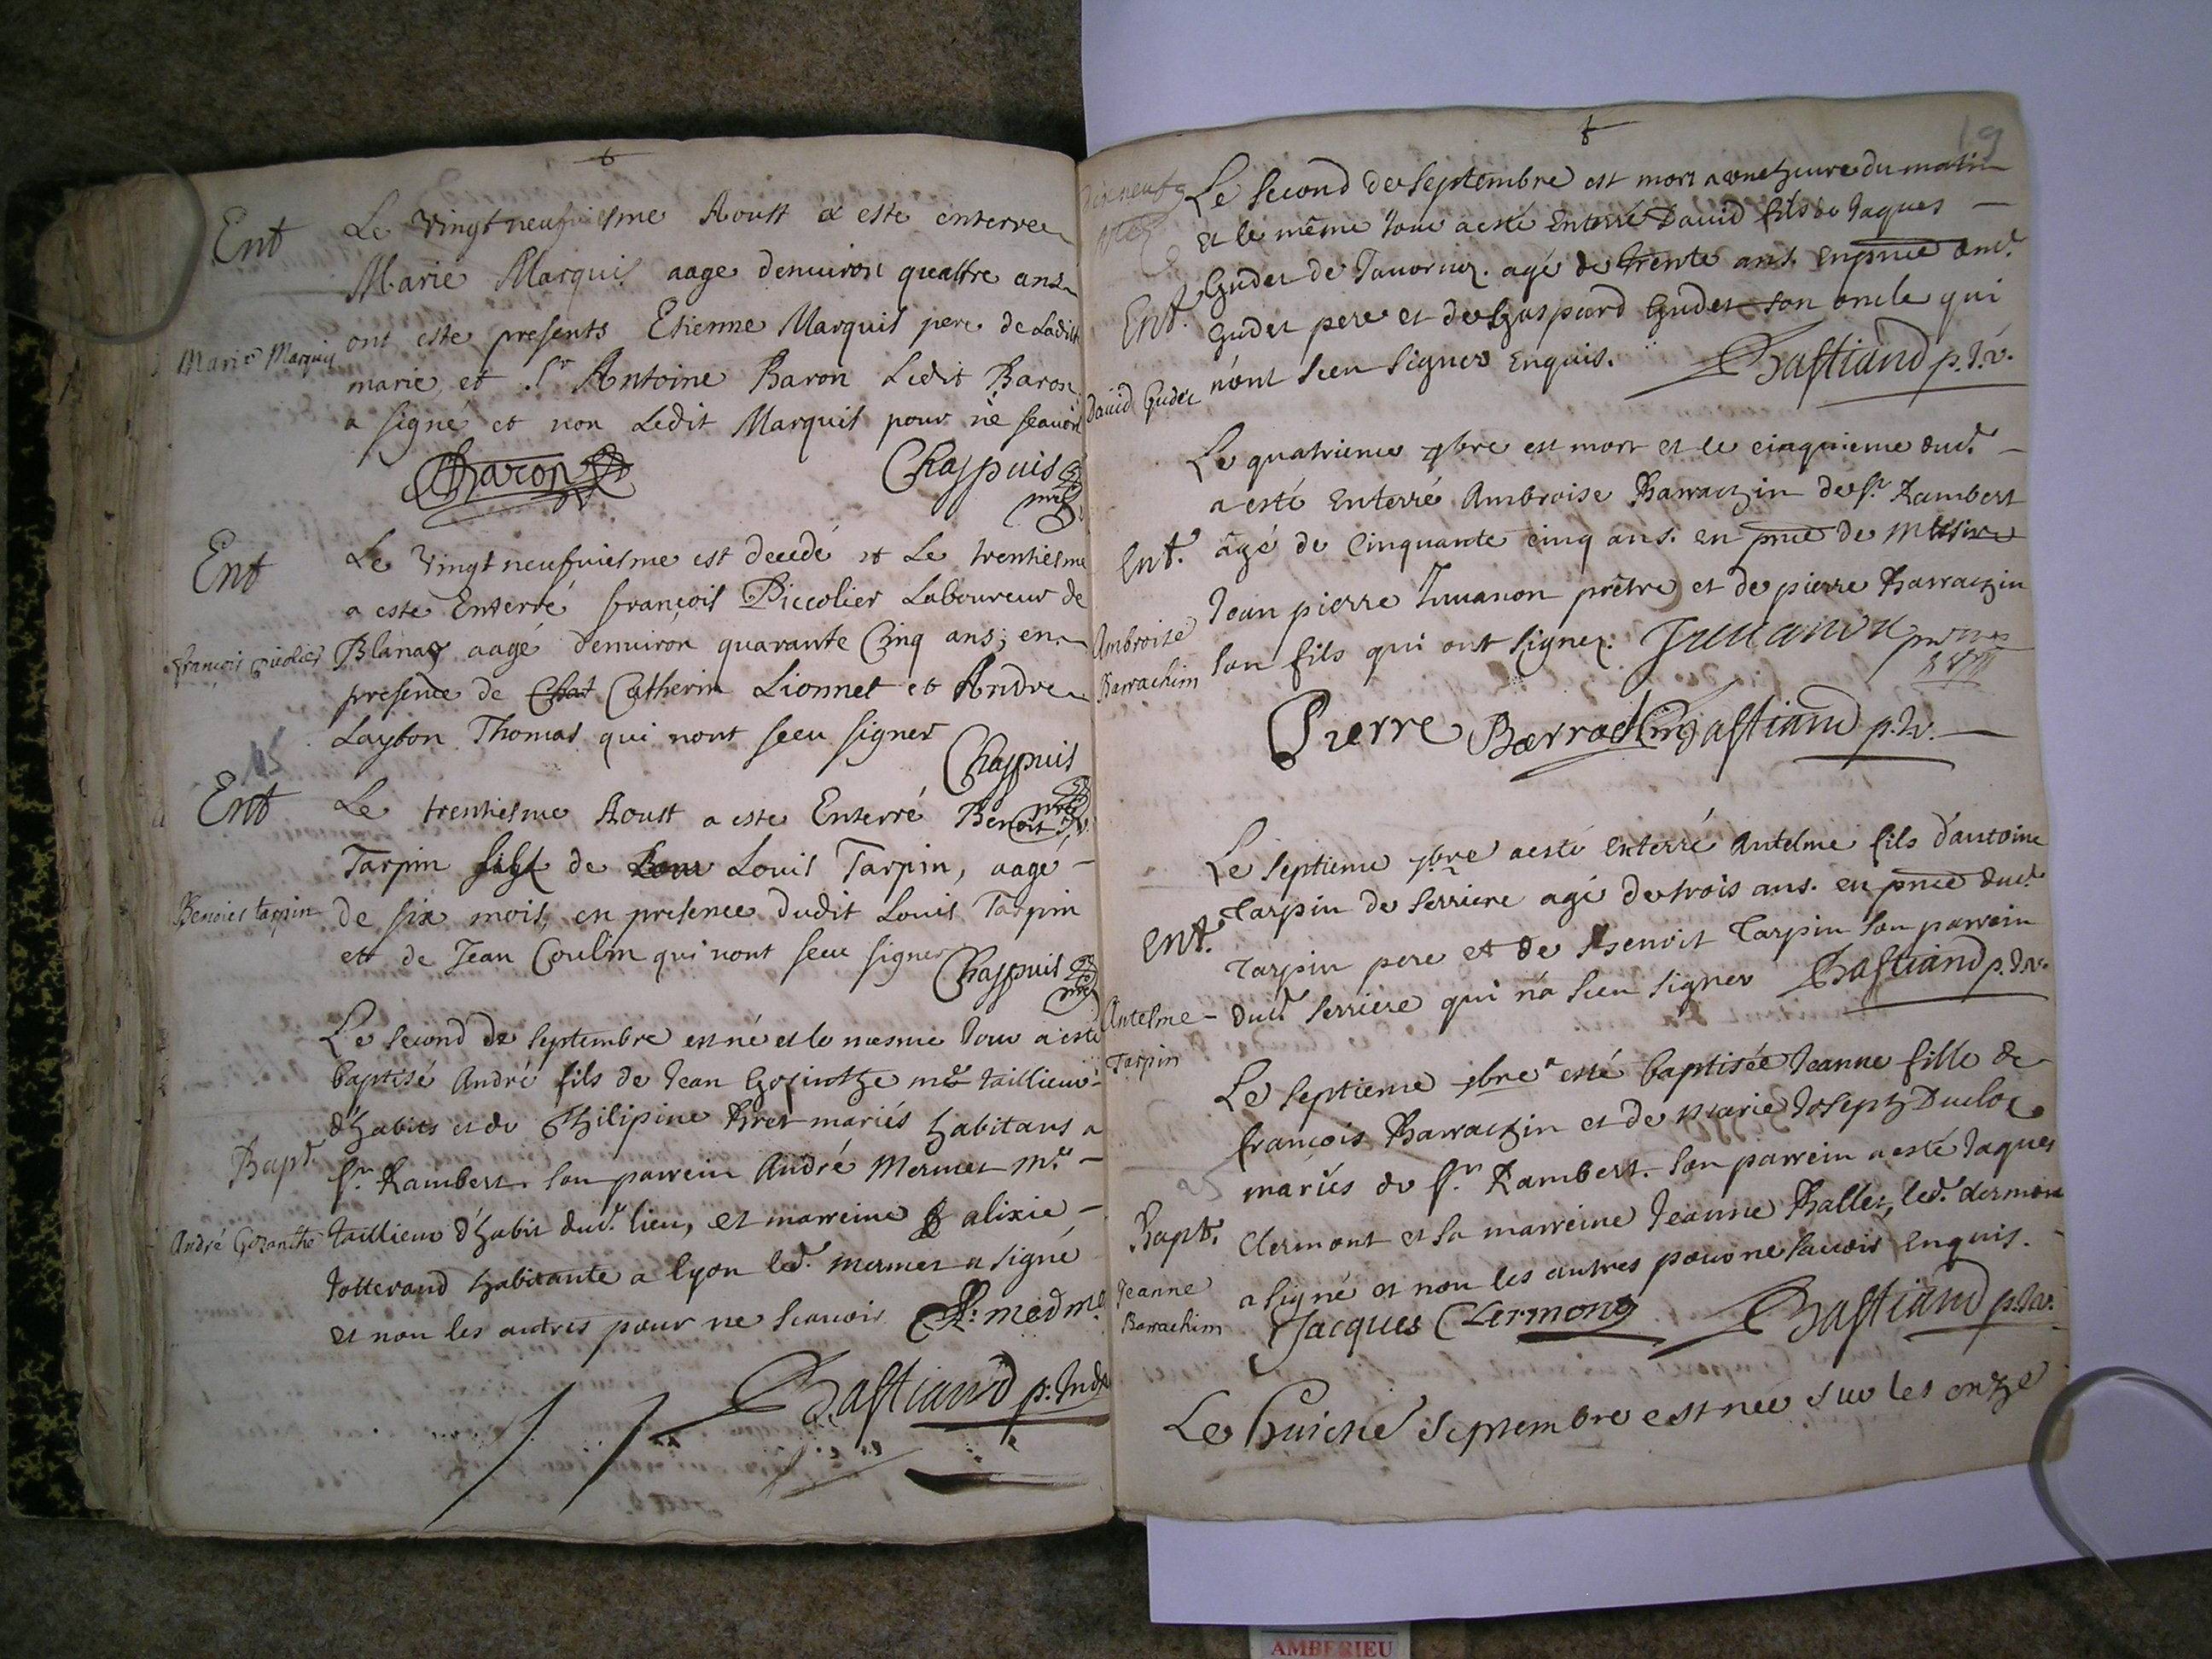 Ent
Le vingt neufuiesme Aoust a este enterree
Marie Marquis aage denuiron quattre ans
ont este presents Etienne Marquis pere de Laditte
Marie Marquis
marie, et Sr Antoine Baron Ledit Baron
a signé et non Ledit Marquis pour ne scauoir
Baron
Chappuis
Ent
Le vingt neufuiesme est decedé et Le trentiesme
a este Enterré françois Piccolier Laboureur de
françois picolier
Blanaz aagé denuiron quarante Cinq ans; en
presence de Catherin Lionnet et Andre
Layton Thomas qui nont sceu signer
Chappuis
15
Ent
Le trentiesme Aoust a este Enterré Benoit
Tarpin fils de Louis Tarpin, aagé
Benoict tarpin
de six mois, en presence dudit Louis Tarpin
ett de Jean Coulin qui nont sceu signer
Chappuis
Le second de septembre est né et le mesme Jour a esté
baptisé André fils de Jean Gosintze me taillieur
d'habits et de Philipine Bret mariés habitans a
Bapt.
St. Rambert. son parrein André Mermet Me.
André Gozanthe
taillieur d'habit dud. lieu, et marreine alixie
Jotterand habitante a lyon led. mermet a signé
et non les autres pour ne scauoir
Bastiand p. Ind.
19
dixneuf
Le second de septembre est mort a onze heure du matin
et le même Jour a esté Enterré David fils de Jaques
Gudet de Tauornuz. agé de trente ans. en pnce dud.
Ent.
Gudet pere et de Gaspard Gudet son oncle qui
David Gudet
n'ont sceu signer Enquis.
Bastiand p. J. v.
Le quatrieme 7bre est mort et le cinquieme dud.
a esté Enterré Ambroise Barrachin de St. Rambert
Ent.
âgé de Cinquante cinq ans. en pnce de Messire
Jean pierre Juuanon prêtre et de pierre Barrachin
Ambroise
Barrachim
son fils qui ont signez.
Juuanon
Pierre Barrachin
Bastiand p. Jv.
Le septieme 7bre a esté Enterré Antelme fils d'antoine
Tarpin de serriere agé de trois ans. en pnce dud.
Ent.
Tarpin pere et de Benoit Tarpin son parrein
Antelme
Tarpin
dud. serriere qui n'a sceu signer
Bastiand p. Jv.
Le septieme 7bre a esté baptisée Jeanne fille de
françois Barrachin et de Marie Joseph Ducloz
mariés de St. Rambert. son parrein a esté Jaques
Bapt.
Clermont et sa marreine Jeanne Ballet, led. clermon
Jeanne
Barrachim
a signé et non les autres pour ne scauoir Enquis.
Jacques Clermont
Bastiand p. Jv.
Le huictie septembre est nee sur les onze
AMBERIEU